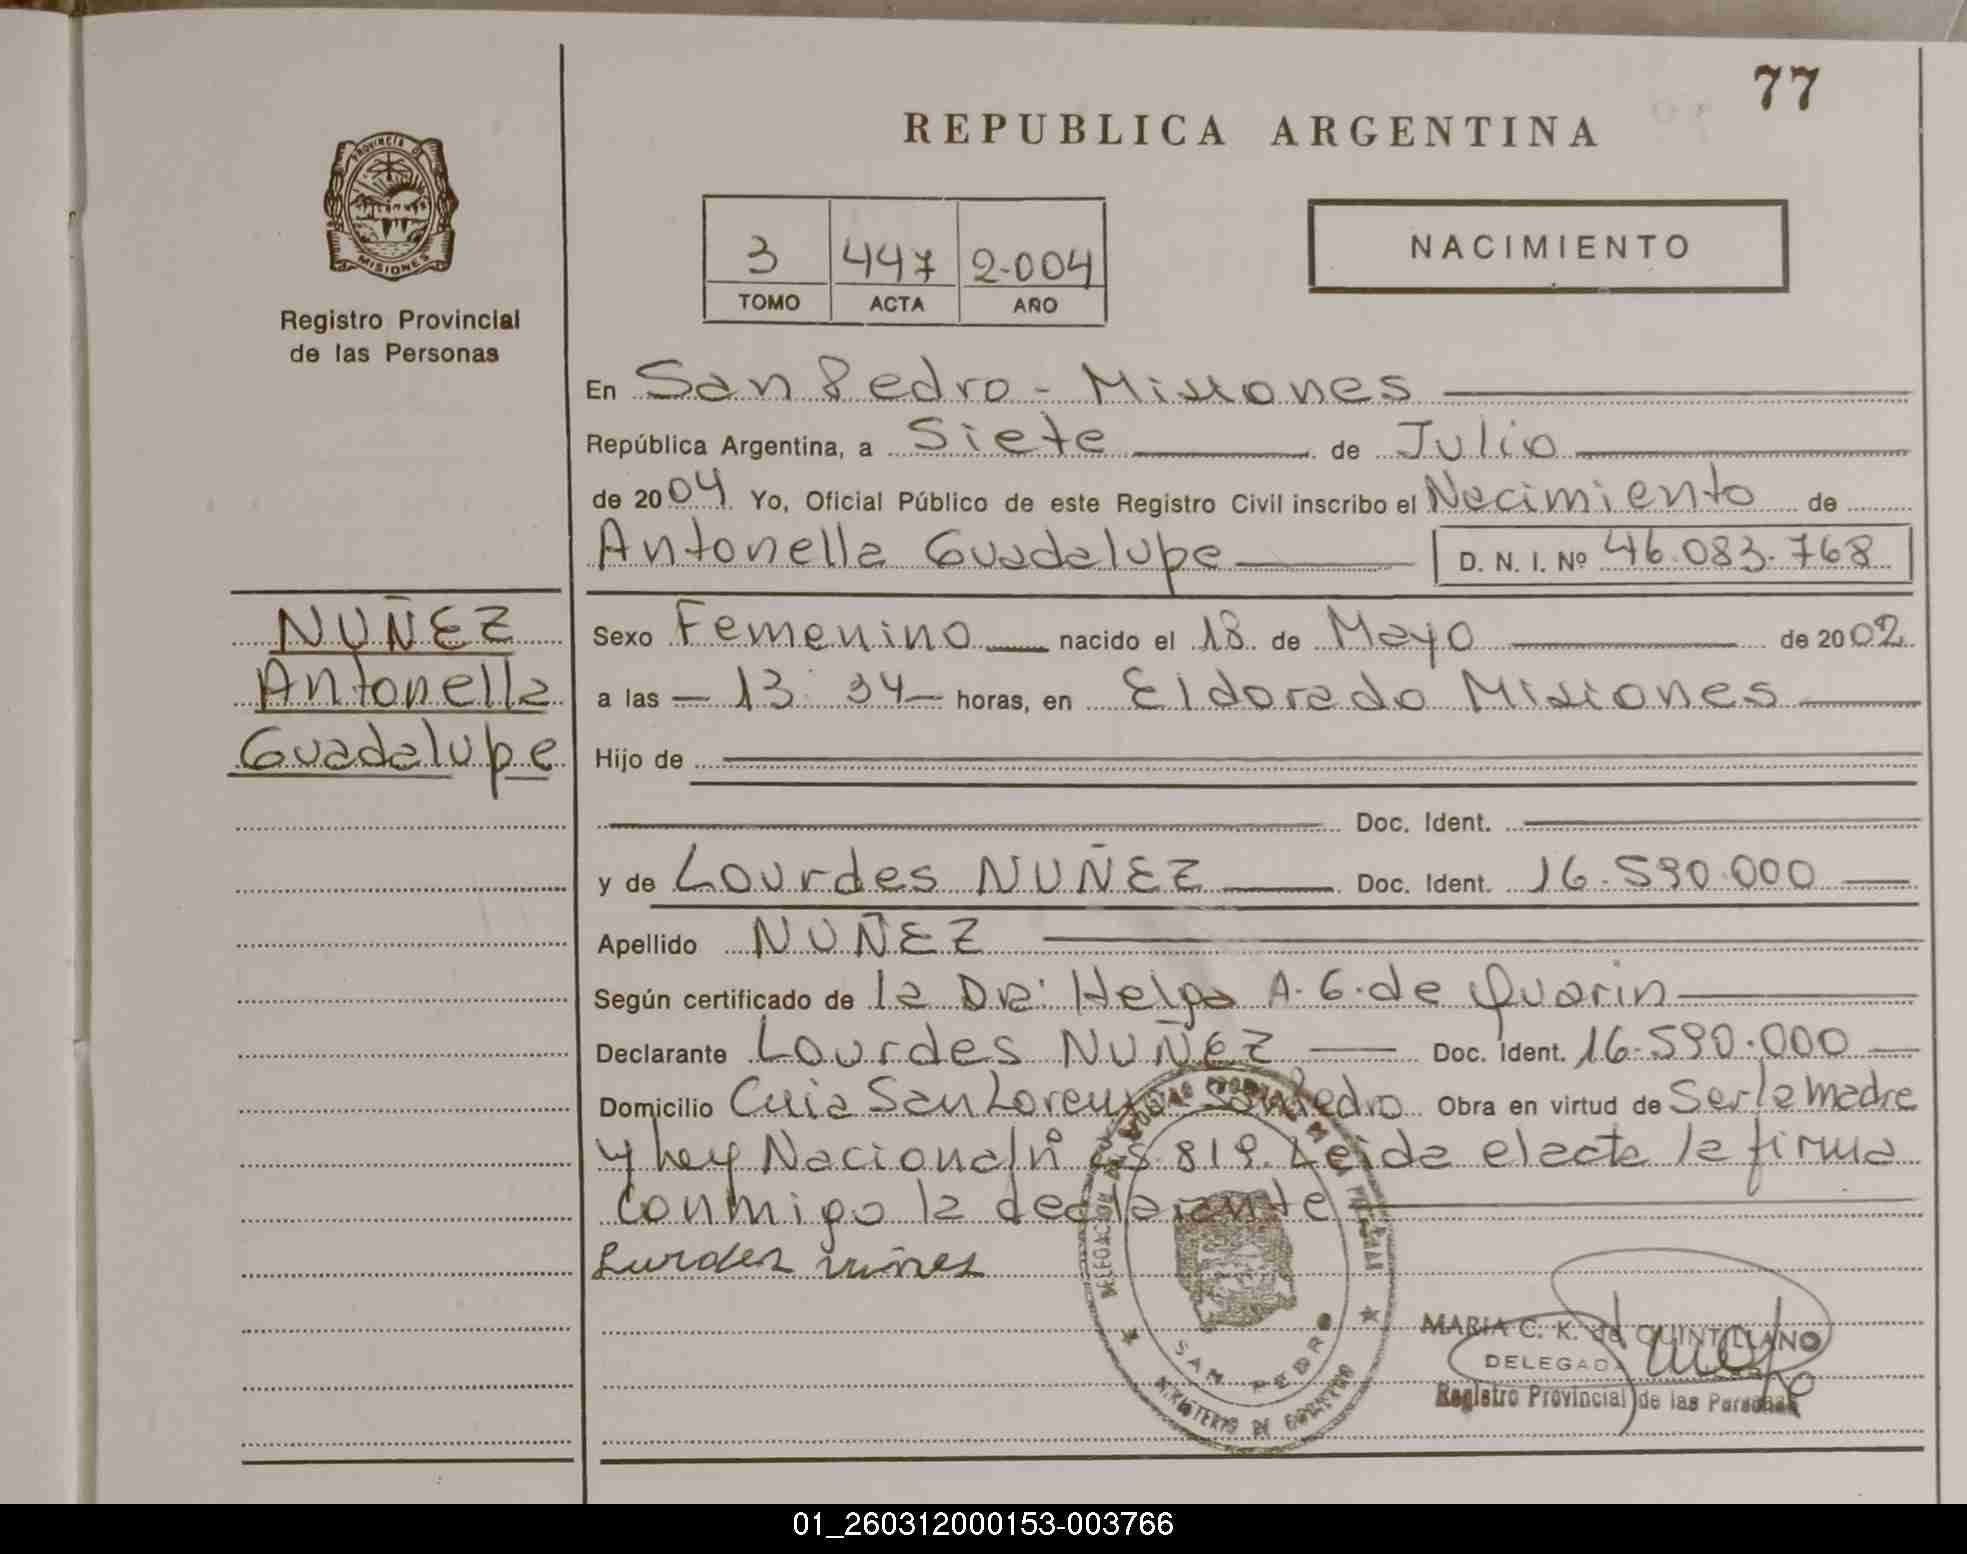 77
REPUBLICA ARGENTINA
PROVINCIA DE
MISIONES
Registro Provincial
de las Personas
3 447 2.004
TOMO ACTA AÑO
NACIMIENTO
En San Pedro - Misiones
República Argentina, a Siete de Julio
de 2004 Yo, Oficial Público de este Registro Civil inscribo el Nacimiento de
Antonella Guadalupe D. N. I. Nº 46.083.768
NUÑEZ
Antonella
Guadalupe
Sexo Femenino nacido el 18 de Mayo de 2002
a las 13:34 horas, en Eldorado Misiones
Hijo de
Doc. Ident.
y de Lourdes NUÑEZ Doc. Ident. 16.590.000
Apellido NUÑEZ
Según certificado de la Dra: Helga A. G. de Quarin
Declarante Lourdes NUÑEZ Doc. Ident. 16.590.000
Domicilio Cuia San Lorenzo San Pedro Obra en virtud de Ser la madre
y ley Nacional nº 25.819. Leida el acta la firma
conmigo la declarante
Lurdes nuñes
SAN PEDRO
MINISTERIO DE GOBIERNO
MARIA C. K. de QUINTILLANO
DELEGADA
Registro Provincial de las Personas
01_260312000153-003766